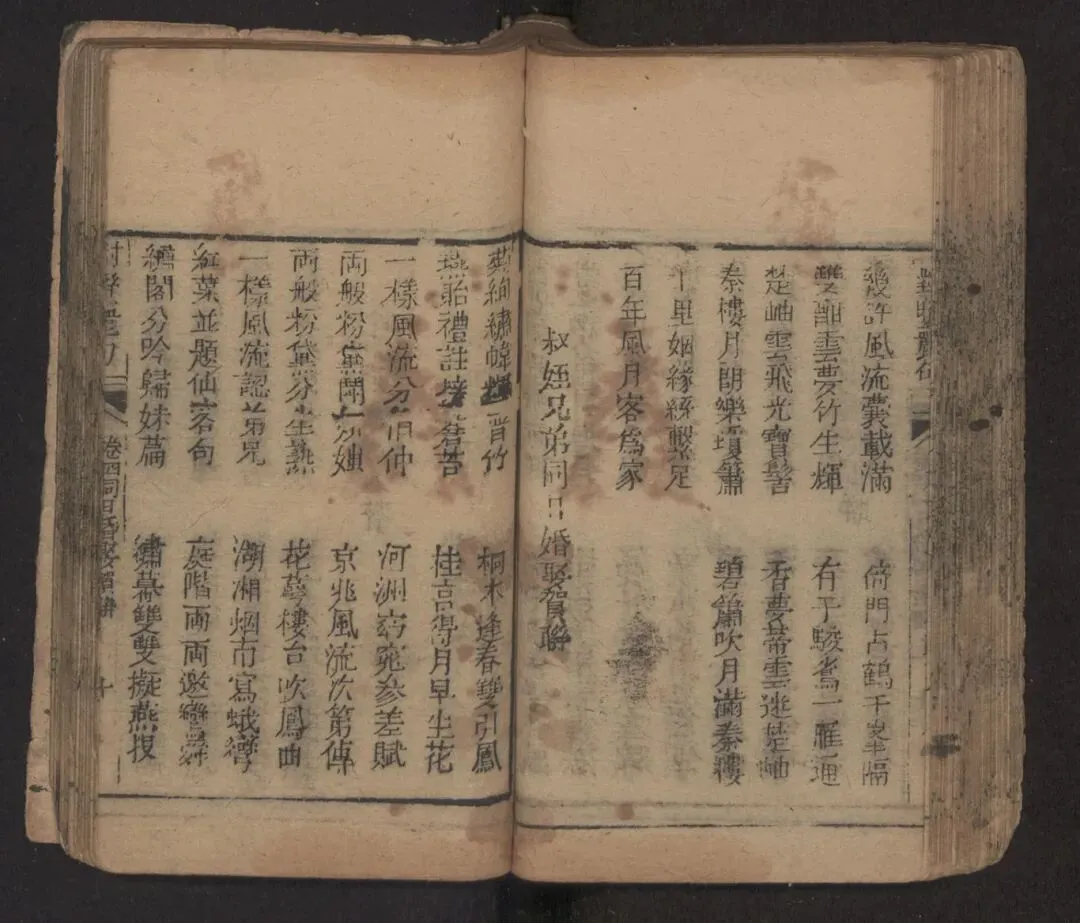 幾許風流囊載滿 門占鶴千
雙 竹生輝 有子 一雁通
楚岫雲飛光寶髻 香夢帶雲迷楚岫
秦樓月朗樂瓊簫 碧簫吹月滿秦樓
十里姻緣絲繫足
百年風月客爲家
叔姪兄弟同日婚娶賀聯
絢繡幃 晋竹 桐木逢春雙引鳳
燕貽禮註 桂宮得月早生花
一樣風流分伯仲 河洲窈窕參差賦
両般粉黛鬧 京兆風流次第傳
両般粉黛分生熟 花萼樓台吹鳳曲
一樣風流認弟兄 湖湘烟市寫蛾彎
紅葉並題仙客句 庭階両両邀鸞舞
繡閣分吟歸妹篇 繡幕雙雙擬燕投
卷四同日婚娶賀聯 十